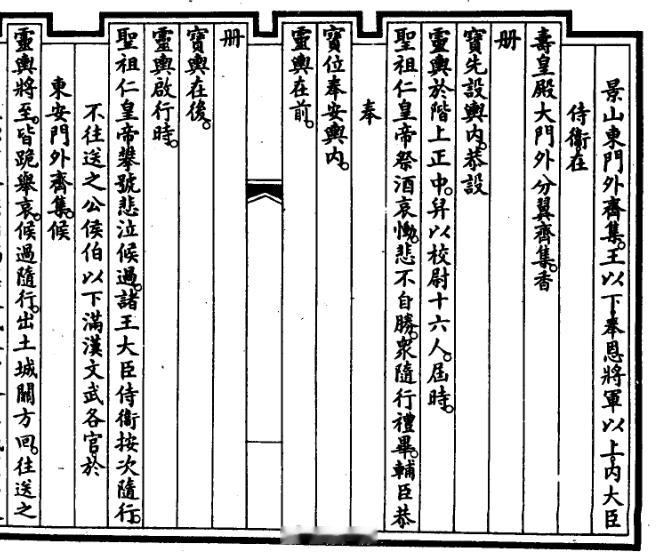 景山東門外齊集。王以下。奉恩將軍以上。內大臣
侍衛在
壽皇殿大門外分翼齊集。香
冊
寶先設輿內。恭設
靈輿於階上正中。舁以校尉十六人。屆時。
聖祖仁皇帝祭酒哀慟。悲不自勝。衆隨行禮畢。輔臣恭
奉
寶位奉安輿內。
靈輿在前。
冊
寶輿在後。
靈輿啟行時。
聖祖仁皇帝攀號悲泣候過。諸王大臣侍衛按次隨行。
不往送之公侯伯以下滿漢文武各官。於
東安門外齊集。候
靈輿將至。皆跪舉哀。候過隨行。出土城關方回。往送之